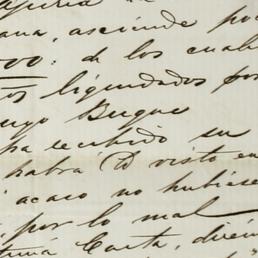 ana, asciende po
000: de los cuale
liquidados por
ugo Buque
ha recibido su
habra U visto en
acaso no hubiese
por lo mal
Carta, dicien